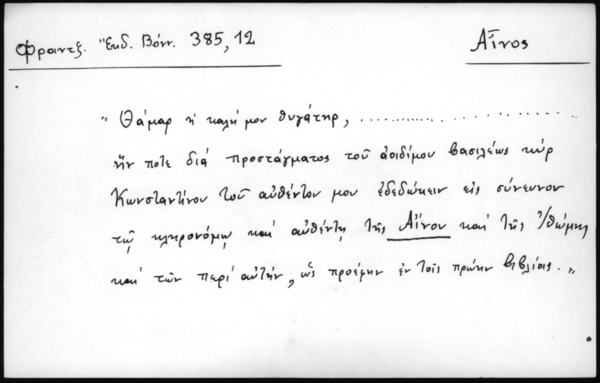 Φραντζ. Ἔκδ. Βόνν. 385, 12
Αἶνος
"Θάμαρ ἡ καλή μου θυγάτηρ, ..............................
ἥν ποτε διά προστάγματος τοῦ ἀοιδίμου βασιλέως κύρ
Κωνσταντίνου τοῦ αὐθέντου μου ἐδεδώκειν εἰς σύνευνον
τῷ κληρονόμῳ καί αὐθέντῃ τῆς Αἴνου καί τῆς
καί τῶν περί αὐτήν, ὡς προέφην ἐν τοῖς πρώην βιβλίοις."